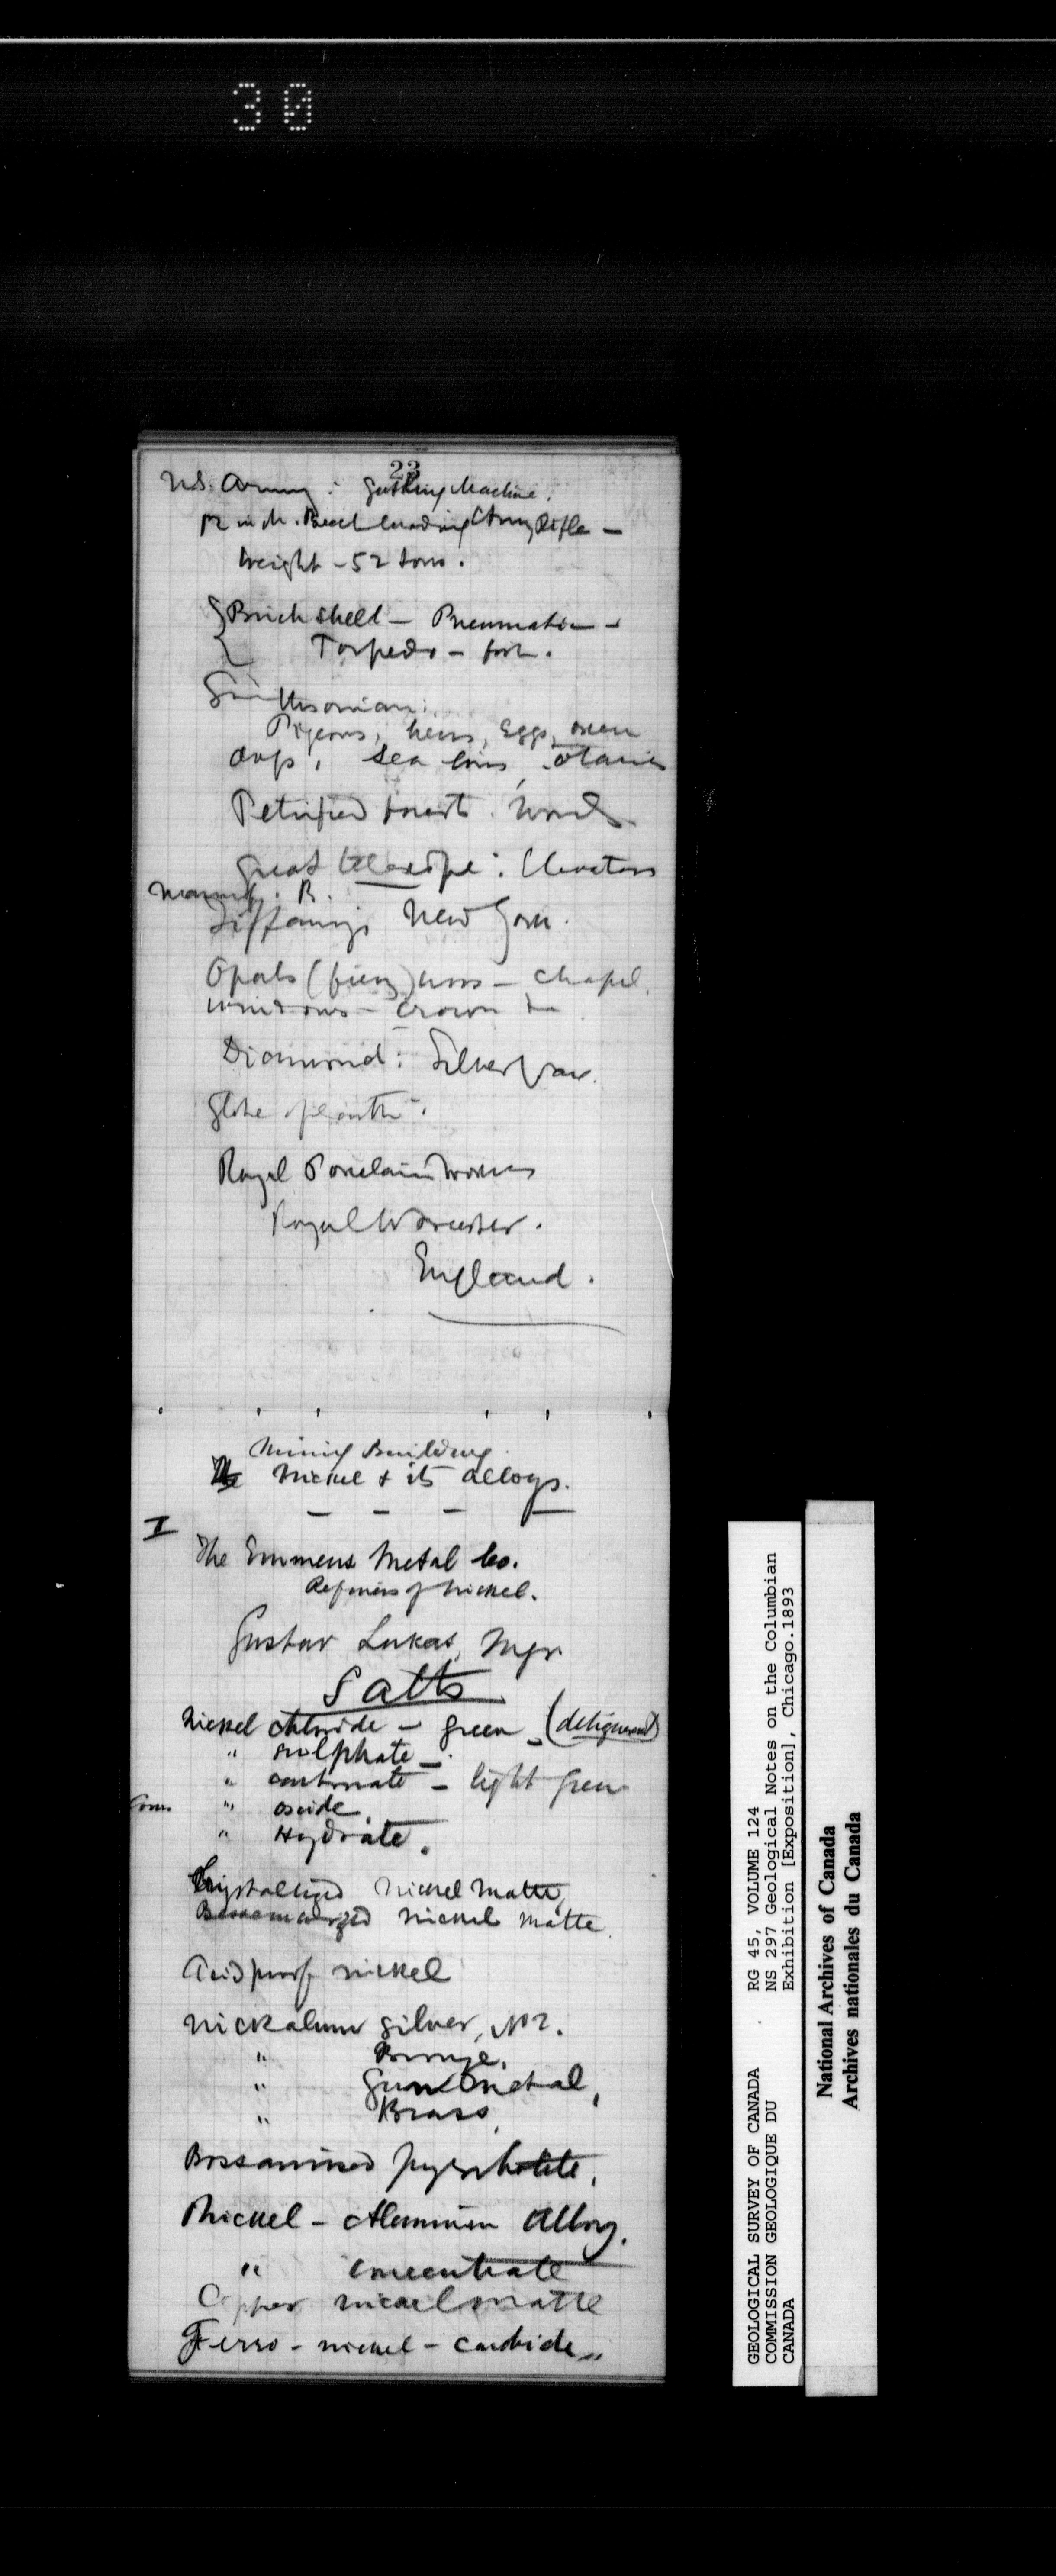 30
23
U.S. Army: Gatling Machine.
12 inch. Breech loading Army Rifle —
Weight - 52 tons.
Shell — Pneumatic —
Torpedo —
Smithsonian:
Pigeons, hens, Eggs,
sea lions, otaries
Petrified forest. Wood
Great telescope: Elevators
Manuf. B.
Tiffany's New York.
Opals (fiery) — chapel.
windows — crown
Diamond: Silver Vase.
Globe of earth.
Royal Porcelain Works
Royal Worcester.
England.
Mining Building.
Nickel & its alloys.
I
The Emmens Metal Co.
Refiners of Nickel.
Gustav Lukas, Mgr.
Salts
Nickel chloride — green — (deliquescent)
" sulphate —
" carbonate — light green
" oxide
" Hydrate.
Crystallized Nickel Matte,
Bessemerized nickel matte.
Acid proof nickel
Nickalum silver, No 2.
" Bronze,
" Gun metal,
" Brass,
Bessemised pyrrhotite,
Nickel — Aluminum Alloy.
" concentrate
Copper nickel matte
Ferro - nickel - carbide
GEOLOGICAL SURVEY OF CANADA
COMMISSION GEOLOGIQUE DU
CANADA
RG 45, VOLUME 124
NS 297 Geological Notes on the Columbian
Exhibition [Exposition], Chicago.1893
National Archives of Canada
Archives nationales du Canada